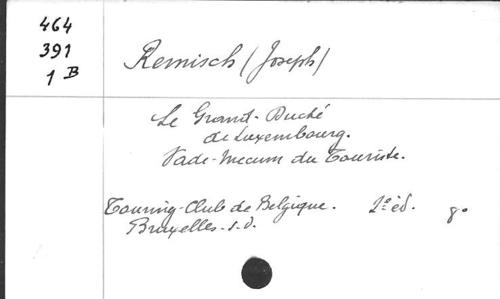 464
391
1 B
Remisch (Joseph)
Le Grand-Duché
de Luxembourg.
Vade-Mecum du Touriste.
Touring-Club de Belgique. 2e éd. 8°
Bruxelles. s.d.